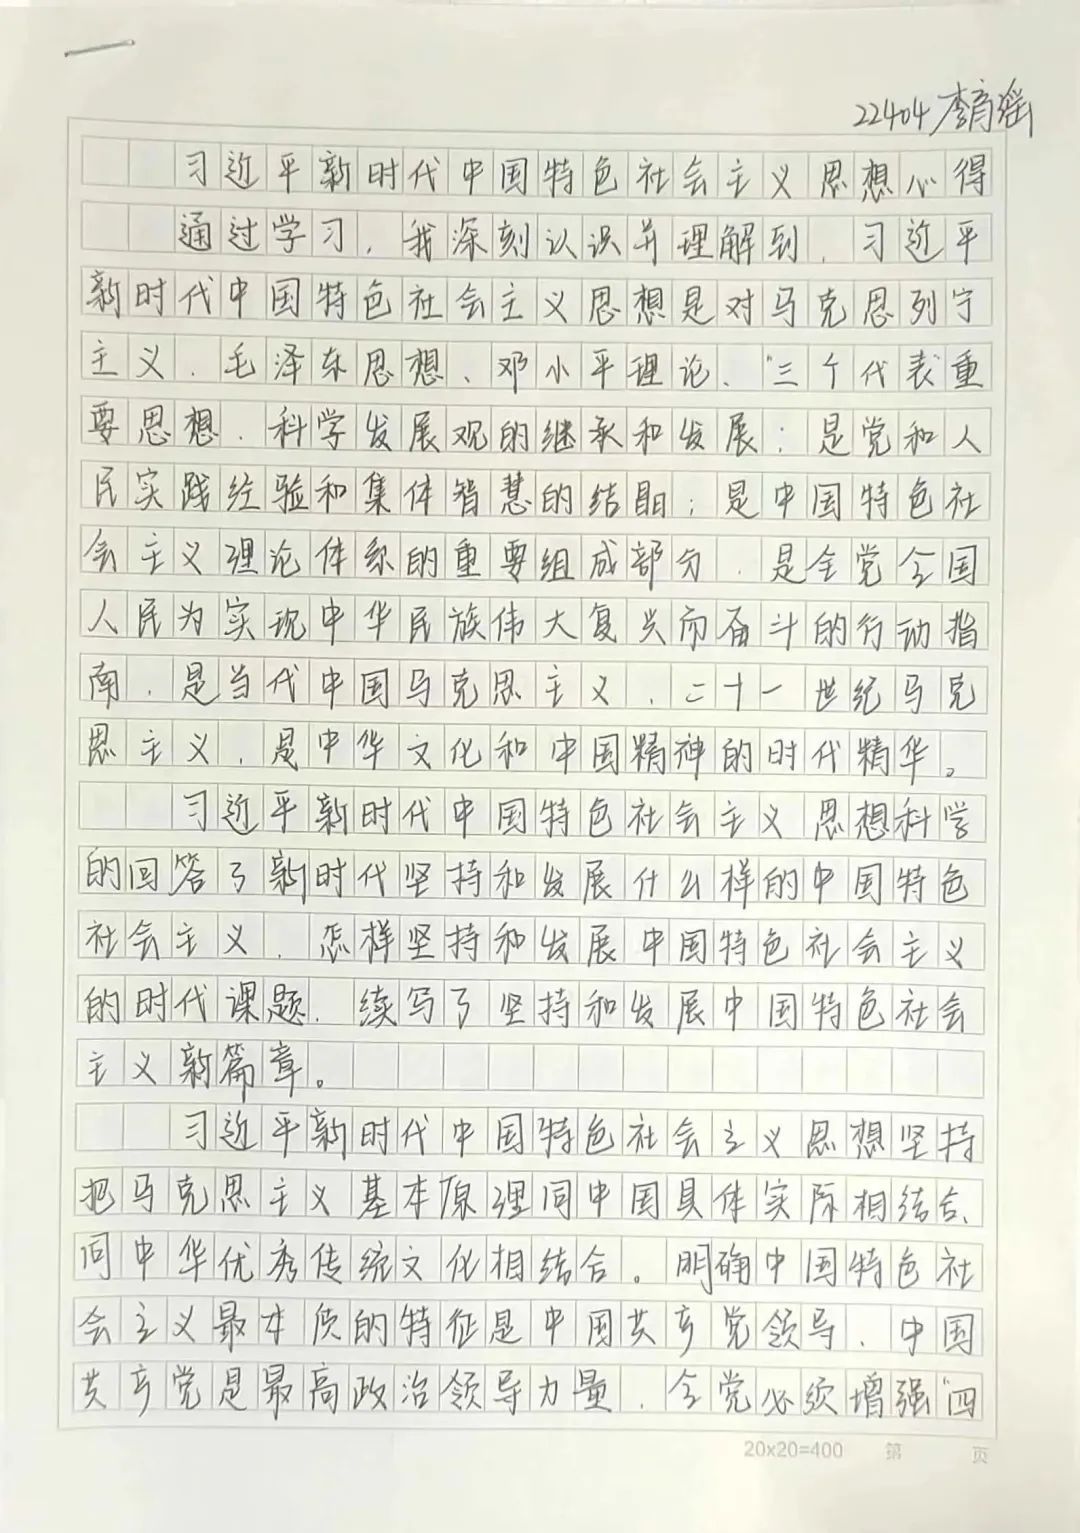 22404 李育瑶
习近平新时代中国特色社会主义思想心得
通过学习，我深刻认识并理解到，习近平
新时代中国特色社会主义思想是对马克思列宁
主义、毛泽东思想、邓小平理论、“三个代表重
要思想、科学发展观的继承和发展；是党和人
民实践经验和集体智慧的结晶；是中国特色社
会主义理论体系的重要组成部分，是全党全国
人民为实现中华民族伟大复兴而奋斗的行动指
南，是当代中国马克思主义，二十一世纪马克
思主义，是中华文化和中国精神的时代精华。
习近平新时代中国特色社会主义思想科学
的回答了新时代坚持和发展什么样的中国特色
社会主义，怎样坚持和发展中国特色社会主义
的时代课题，续写了坚持和发展中国特色社会
主义新篇章。
习近平新时代中国特色社会主义思想坚持
把马克思主义基本原理同中国具体实际相结合、
同中华优秀传统文化相结合。明确中国特色社
会主义最本质的特征是中国共产党领导，中国
共产党是最高政治领导力量，全党必须增强“四
20x20=400 第 页